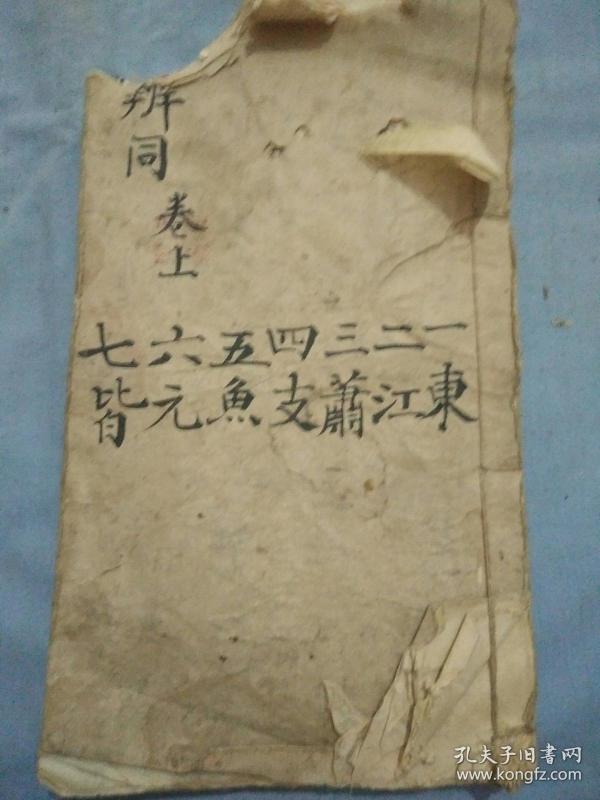 辨同
卷上
一東
二江
三蕭
四支
五魚
六元
七皆
孔夫子旧书网
www.kongfz.com